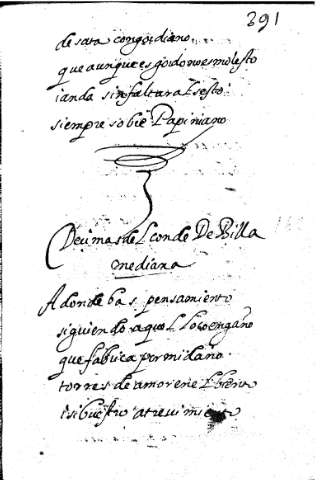 391
desata congordiano
que aunque es gordo no es molesto
i anda sin faltar al sesto
siempre sobre Papiniano
Decimas del conde De Billa
mediana
Adonde bas pensamiento
siguiendo aquel loco engaño
que fabrica por mi daño
torres de amor en el
i si buestro atreuimiento